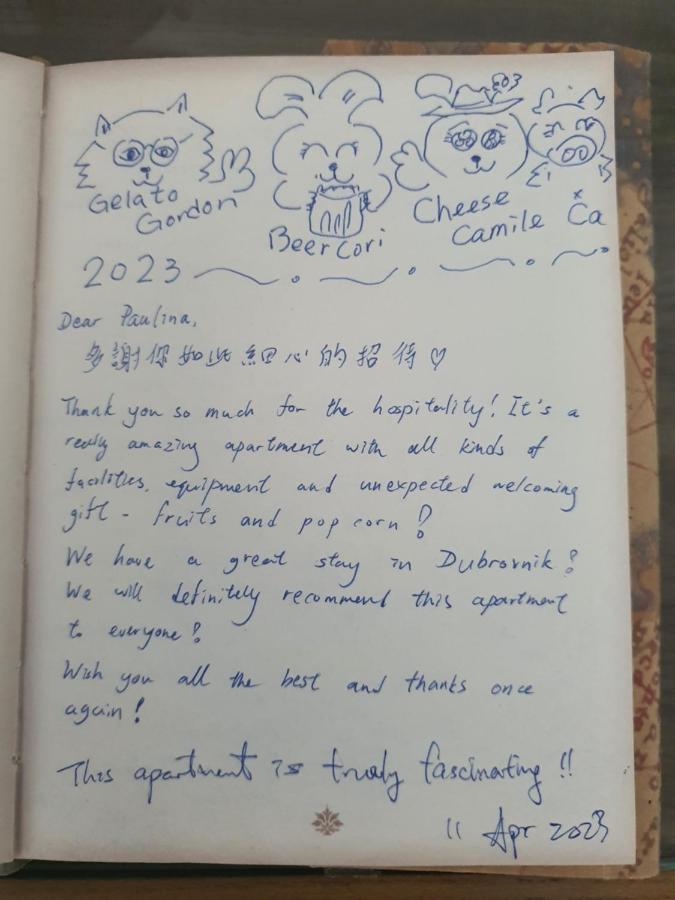 Gelato
Gordon
Beer Cori
Cheese
Camile
Ča
2023
Dear Paulina,
多謝你如此細心的招待♡
Thank you so much for the hospitality! It's a
realy amazing apartment with all kinds of
facilities, equipment and unexpected welcoming
gift - fruits and pop corn!
We have a great stay in Dubrovnik!
We will definitely recommend this apartment
to everyone!
Wish you all the best and thanks once
again!
This apartment is truly fascinating!!
11 Apr 2023